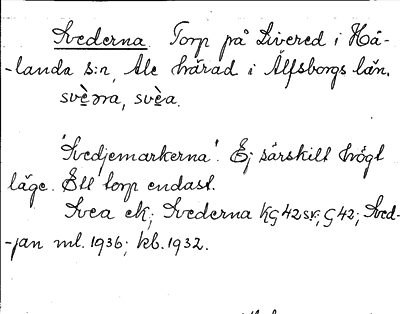 Svederna. Torp på Livered i Hå-
-landa s:n, Ale härad i Älfsborgs län.
svèəra, svèa.
'Svedjemarkerna'. Ej särskilt högt
läge. Ett torp endast.
Svea ek; Svederna KG42sv; G42; Sved-
-jan ml. 1936; kb. 1932.